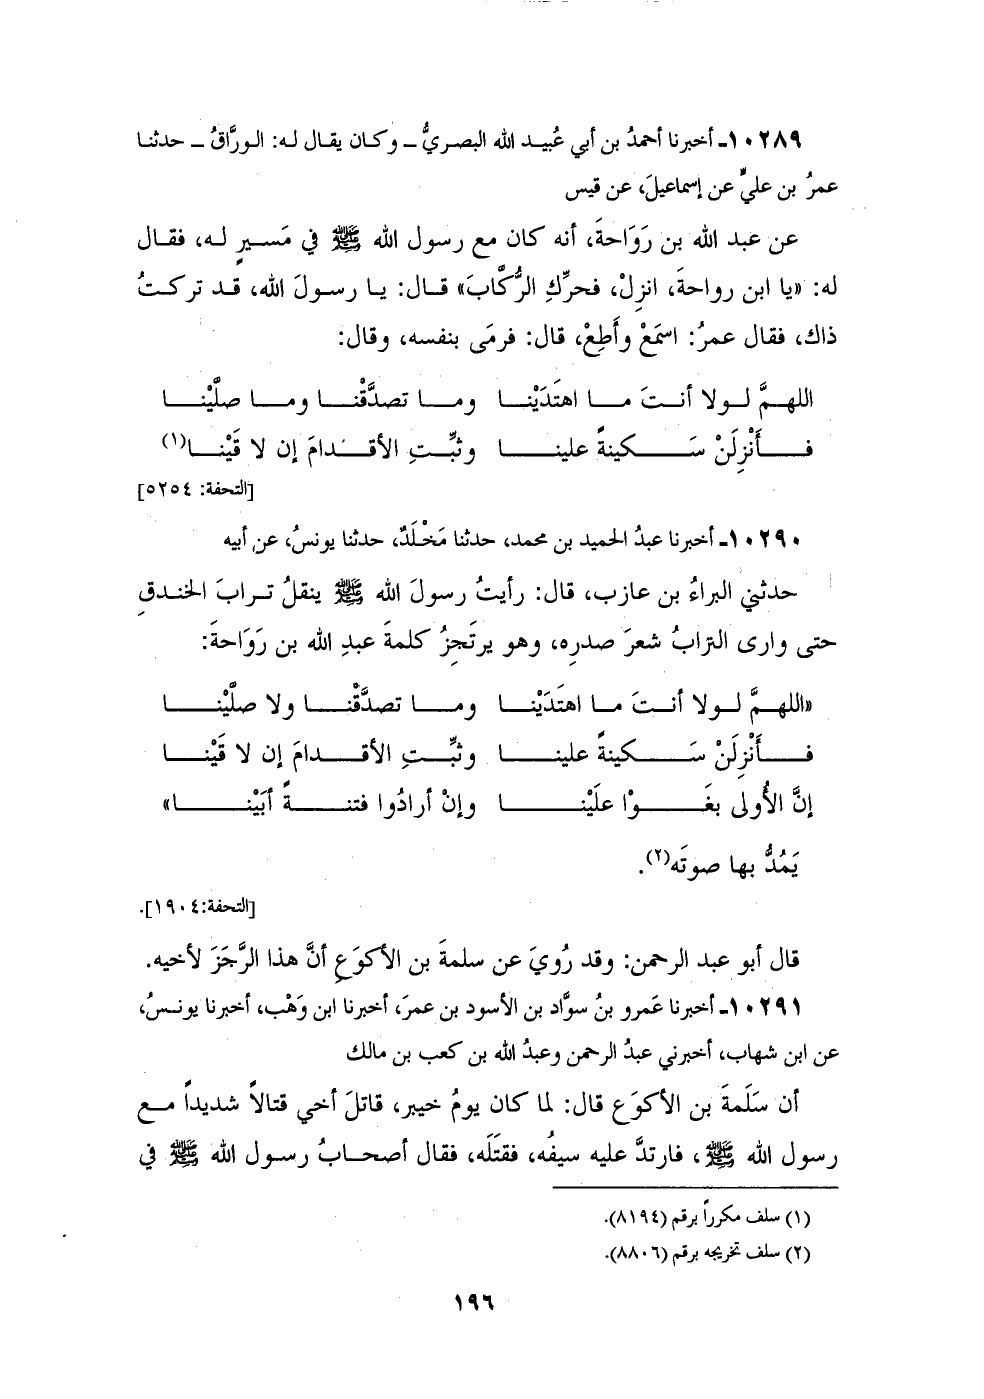 ١٠٢٨٩ـ أخبرنا أحمدُ بن أبي عُبيد الله البصريُّ ـ وكان يقال له: الورَّاقُ ـ حدثنا
عمرُ بن عليٍّ عن إسماعيلَ، عن قيس
عن عبد الله بن رَوَاحةَ، أنه كان مع رسول الله ﷺ في مَسيرٍ له، فقال
له: «يا ابن رواحةَ، انزِلْ، فحرِّكِ الرُّكَّابَ» قال: يا رسولَ الله، قد تركتُ
ذاك، فقال عمرُ: اسمَعْ وأَطِعْ، قال: فرمَى بنفسه، وقال:
اللهمَّ لولا أنتَ ما اهتَدَيْنا وما تصدَّقْنا وما صلَّيْنا
فأَنْزِلَنْ سَكينةً علينا وثبِّتِ الأقدامَ إن لا قَيْنا(١)
[التحفة: ٥٢٥٤]
١٠٢٩٠ـ أخبرنا عبدُ الحميد بن محمد، حدثنا مَخْلَدٌ، حدثنا يونسُ، عن أبيه
حدثني البراءُ بن عازب، قال: رأيتُ رسولَ الله ﷺ ينقلُ ترابَ الخندقِ
حتى وارى الترابُ شعرَ صدرِه، وهو يرتَجِزُ كلمةَ عبدِ الله بن رَوَاحةَ:
«اللهمَّ لولا أنتَ ما اهتَدَيْنا وما تصدَّقْنا ولا صلَّيْنا
فأَنْزِلَنْ سَكينةً علينا وثبِّتِ الأقدامَ إن لا قَيْنا
إنَّ الأُولى بغَوْا علَيْنا وإنْ أرادُوا فتنةً أبَيْنا»
يَمُدُّ بها صوتَه(٢).
[التحفة:١٩٠٤].
قال أبو عبد الرحمن: وقد رُويَ عن سلمةَ بن الأكوَعِ أنَّ هذا الرَّجَزَ لأخيه.
١٠٢٩١ـ أخبرنا عَمرو بنُ سوَّاد بن الأسود بن عمرَ، أخبرنا ابن وَهْب، أخبرنا يونسُ،
عن ابن شهاب، أخبرني عبدُ الرحمن وعبدُ الله بن كعب بن مالك
أن سَلَمةَ بن الأكوَعِ قال: لما كان يومُ خيبر، قاتلَ أخي قتالاً شديداً مع
رسول الله ﷺ، فارتدَّ عليه سيفُه، فقتَلَه، فقال أصحابُ رسول الله ﷺ في
(١) سلف مكرراً برقم (٨١٩٤).
(٢) سلف تخريجه برقم (٨٨٠٦).
١٩٦